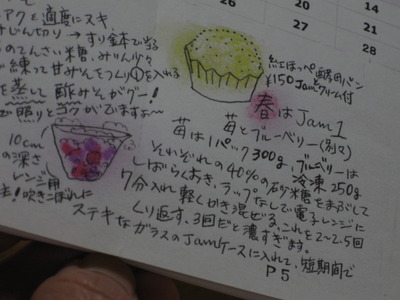 アクと適度にスキ、
みじん切り→すり鉢で当る
のてんさい糖、みりん少々
で練って甘みそをつくり①を入れる
を蒸して酢みそがグー!
で照りとコクがでますよ〜
10cm
の深さ
レンジ用
注!吹きこぼれに
26 20 21
27 28
14
紅ほっぺ 酵母パン
¥150 Jamとクリーム付
春はJam 1
苺とブルーベリー(別々)
苺は1パック300g、ブルーベリーは冷凍250g
それぞれの40%の砂糖をまぶして
しばらくおき、ラップなしで電子レンジに
7分入れ軽くかき混ぜる、これを2〜2.5回
くり返す。3回だと濃すぎます。
ステキなガラスのJamケースに入れて、短期間で
P5